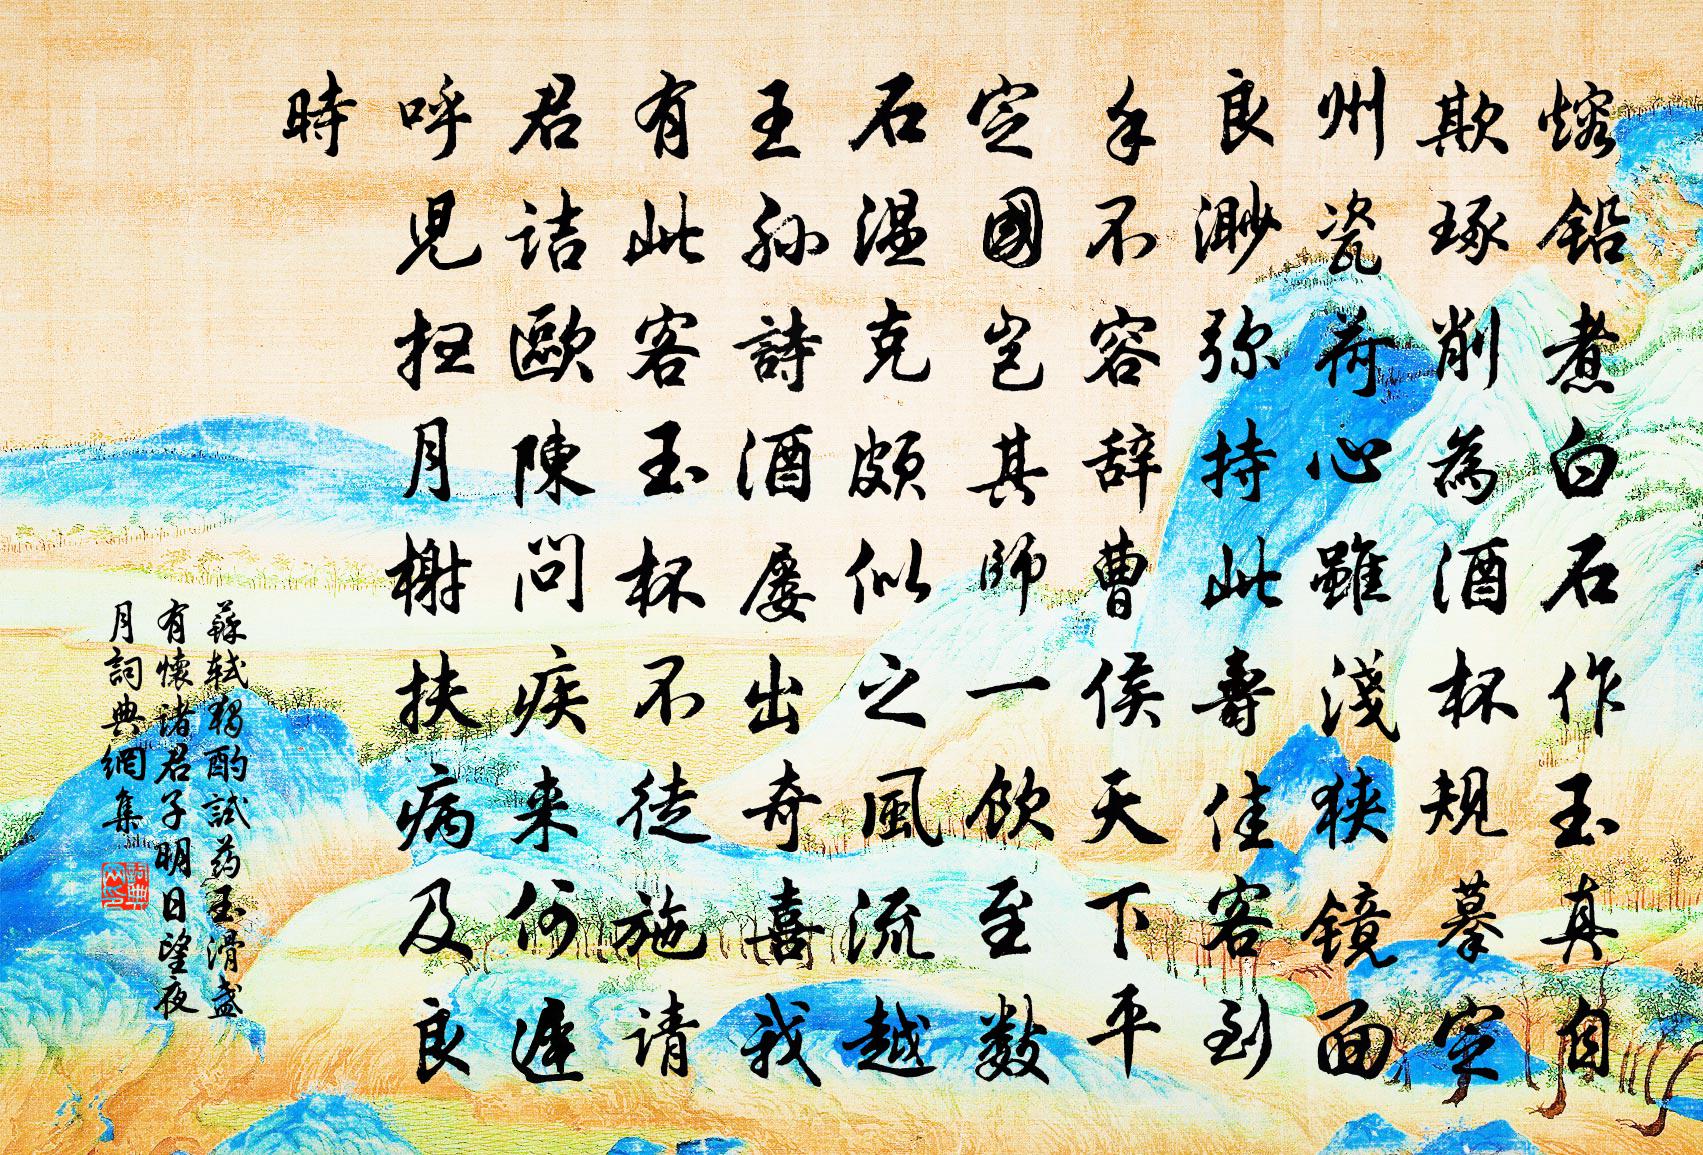 熔鉛煮白石作玉真自
欺琢削為酒杯規摹定
州瓷荷心雖淺狹镜面
良渺弥持此壽佳客到
手不容辞曹侯天下平
定國豈其師一飲至數
石温克頗似之風流越
王孫詩酒屢出奇喜我
有此客玉杯不徒施请
君詰歐陳問疾来何遲
呼兒扫月榭扶病及良
時
蘇轼獨酌試药玉滑盞
有懷诸君子明日望夜
月詞典網集